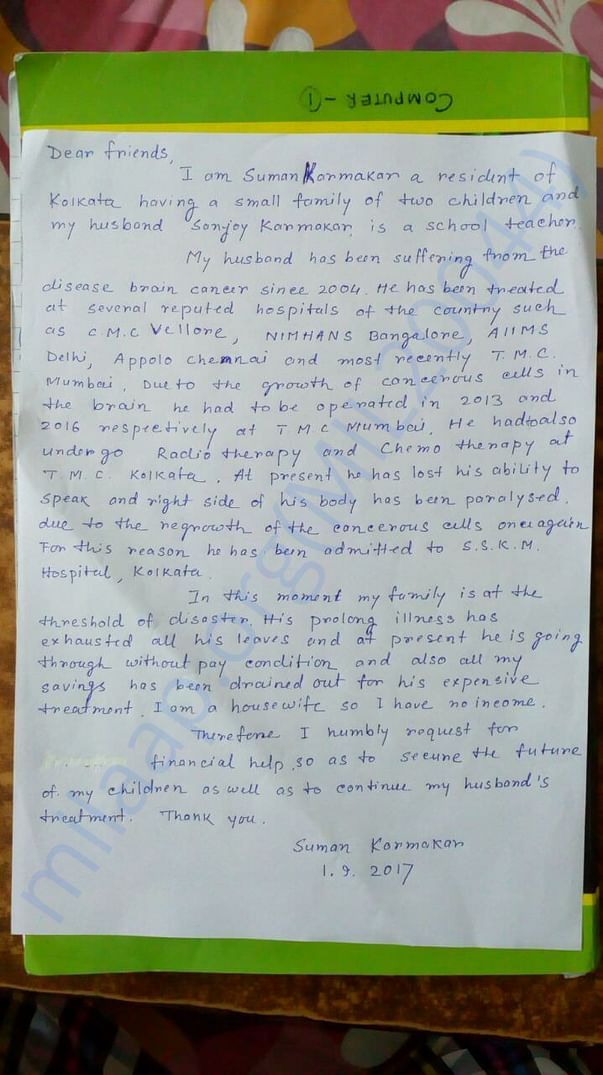 COMPUTER - 1
Dear friends,
I am Suman Karmakar a resident of
Kolkata having a small family of two children and
my husband Sonjoy Karmakar is a school teacher.
My husband has been suffering from the
disease brain cancer since 2004. He has been treated
at several reputed hospitals of the country such
as C.M.C Vellore, NIMHANS Bangalore, AIIMS
Delhi, Appolo Chennai and most recently T.M.C.
Mumbai. Due to the growth of cancerous cells in
the brain he had to be operated in 2013 and
2016 respectively at T.M.C Mumbai. He had to also
undergo Radio therapy and Chemo therapy at
T.M.C. Kolkata. At present he has lost his ability to
speak and right side of his body has been paralysed.
due to the regrowth of the cancerous cells once again
For this reason he has been admitted to S.S.K.M.
Hospital, Kolkata.
In this moment my family is at the
threshold of disaster. His prolong illness has
exhausted all his leaves and at present he is going
through without pay condition and also all my
savings has been drained out for his expensive
treatment. I am a housewife so I have no income.
Therefore I humbly request for
financial help so as to secure the future
of my children as well as to continue my husband's
treatment. Thank you.
Suman Karmakar
1.9.2017
milaap.org(MIL20044)